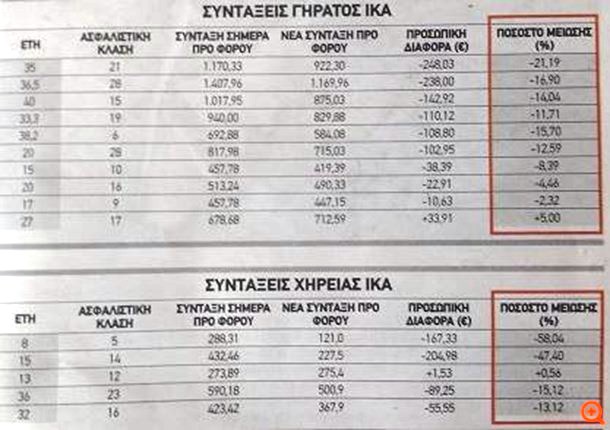 ΣΥΝΤΑΞΕΙΣ ΓΗΡΑΤΟΣ ΙΚΑ
ΕΤΗ ΑΣΦΑΛΙΣΤΙΚΗ ΚΛΑΣΗ ΣΥΝΤΑΞΗ ΣΗΜΕΡΑ ΠΡΟ ΦΟΡΟΥ ΝΕΑ ΣΥΝΤΑΞΗ ΠΡΟ ΦΟΡΟΥ ΠΡΟΣΩΠΙΚΗ ΔΙΑΦΟΡΑ (€) ΠΟΣΟΣΤΟ ΜΕΙΩΣΗΣ (%)
35 21 1.170,33 922,30 -248,03 -21,19
36,5 28 1.407,96 1.169,96 -238,00 -16,90
40 15 1.017,95 875,03 -142,92 -14,04
33,3 19 940,00 829,88 -110,12 -11,71
38,2 6 692,88 584,08 -108,80 -15,70
20 28 817,98 715,03 -102,95 -12,59
15 10 457,78 419,39 -38,39 -8,39
20 16 513,24 490,33 -22,91 -4,46
17 9 457,78 447,15 -10,63 -2,32
27 17 678,68 712,59 +33,91 +5,00
ΣΥΝΤΑΞΕΙΣ ΧΗΡΕΙΑΣ ΙΚΑ
ΕΤΗ ΑΣΦΑΛΙΣΤΙΚΗ ΚΛΑΣΗ ΣΥΝΤΑΞΗ ΣΗΜΕΡΑ ΠΡΟ ΦΟΡΟΥ ΝΕΑ ΣΥΝΤΑΞΗ ΠΡΟ ΦΟΡΟΥ ΠΡΟΣΩΠΙΚΗ ΔΙΑΦΟΡΑ (€) ΠΟΣΟΣΤΟ ΜΕΙΩΣΗΣ (%)
8 5 288,31 121,0 -167,33 -58,04
15 14 432,46 227,5 -204,98 -47,40
13 12 273,89 275,4 +1,53 +0,56
36 23 590,18 500,9 -89,25 -15,12
32 16 423,42 367,9 -55,55 -13,12